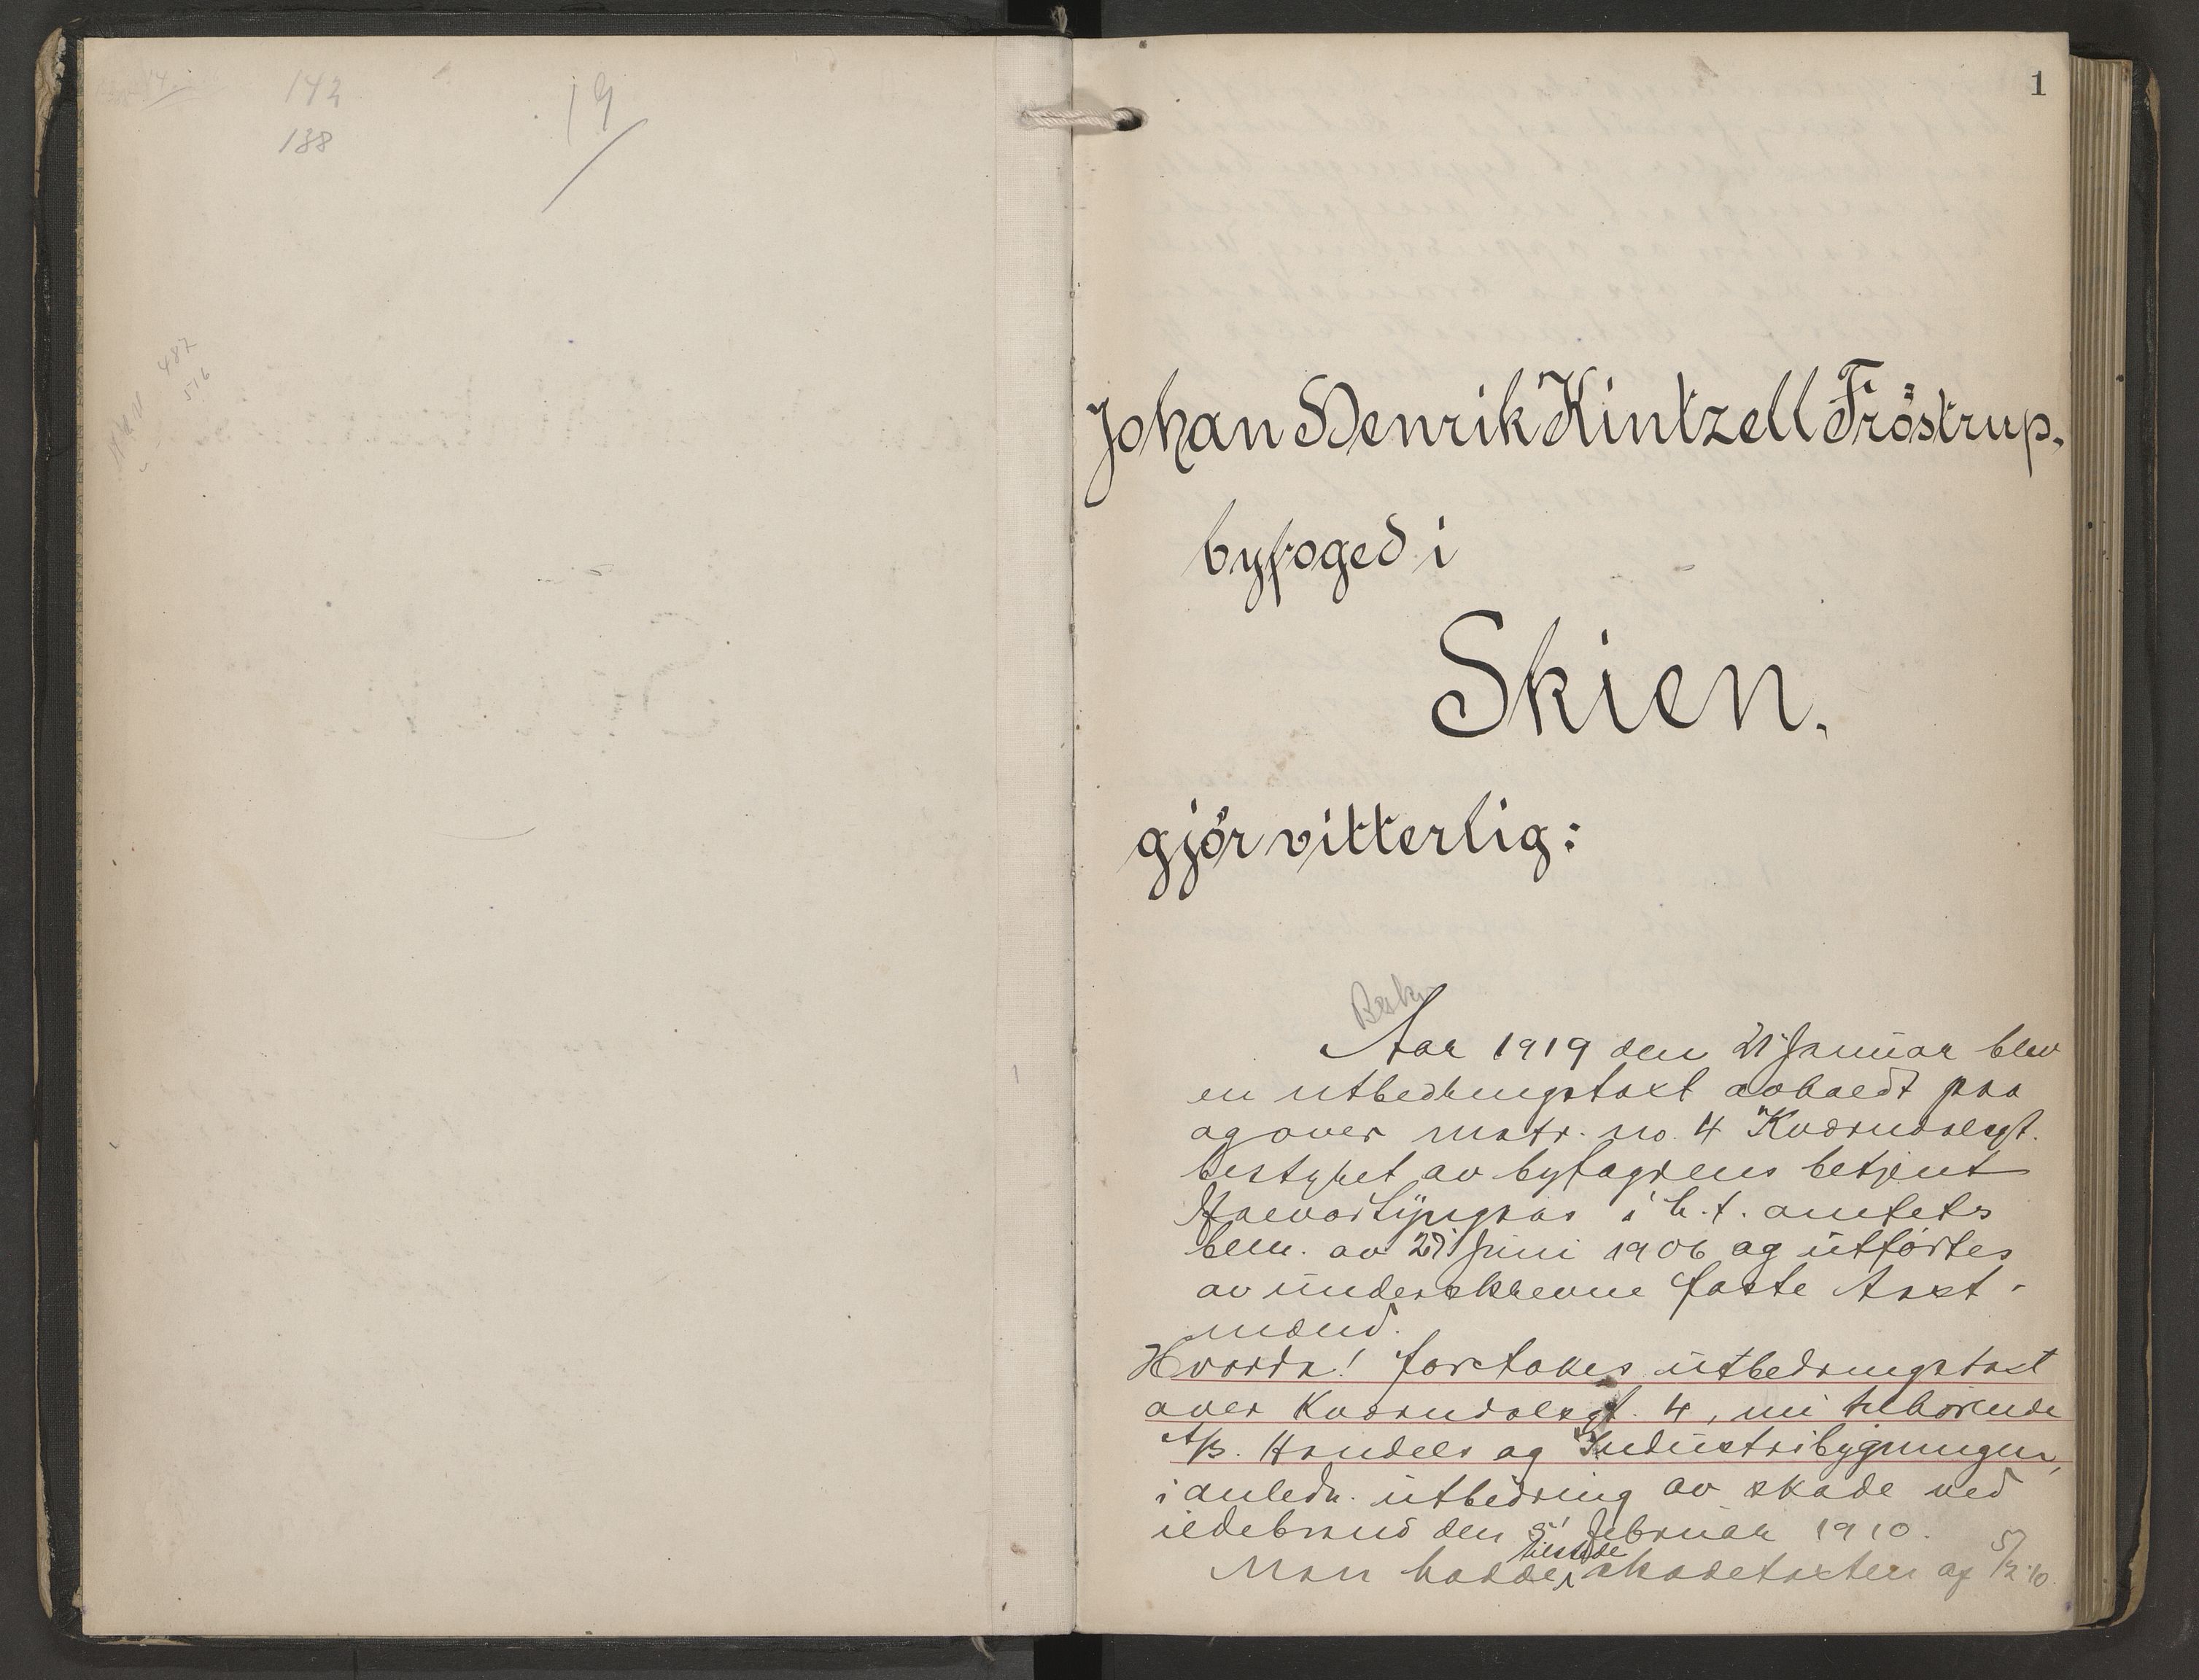 142
138
19
487
516
1
Johan Henrik Kintzell Fröstrup.
byfoged i
Skien.
gjör vitterlig:
Besk.
Aar 1919 den 21 Januar blev
en utbedringstaxt avholdt paa
og over matr. no. 4 Kværndalsgt.
bestyret av byfogdens betjent
i h. t. amtets
bem. av 27 Juni 1906 og utförtes
av underskrevne faste taxt-
mænd.
Hvorda! foretokes utbedringstaxt
over Kværndalsgt. 4, nu tilhörende
A/S. Handels og Industribygningen,
i anledn. utbedring av skade ved
ildebrand den 5' februar 1910.
Man hadde tilstede skadetaxten af 5/2 10.